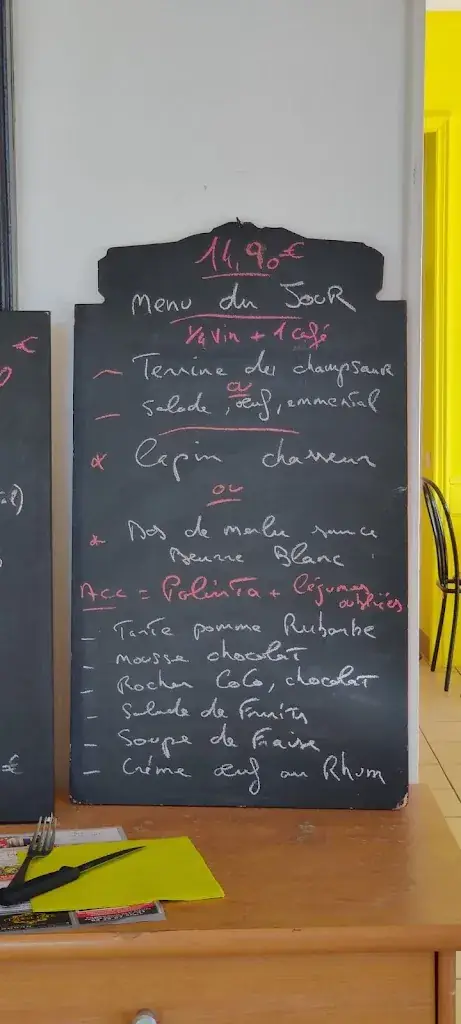 14,90€
Menu du JOUR
1/4 Vin + 1 café
Terrine du champsaur
ou
Salade, œuf, emmental
lapin chasseur
ou
Dos de merlu sauce
Beurre Blanc
Acc = Polinta + légumes
oubliées
Tarte pomme Rubarbe
mousse chocolat
Rocher CoCo, chocolat
Salade de Fruits
Soupe de Fraise
Crème œuf au Rhum
€